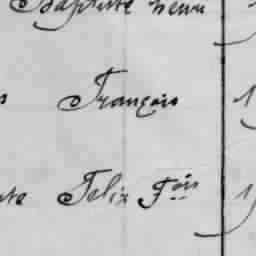 Baptiste Henri
François
Felix Fois